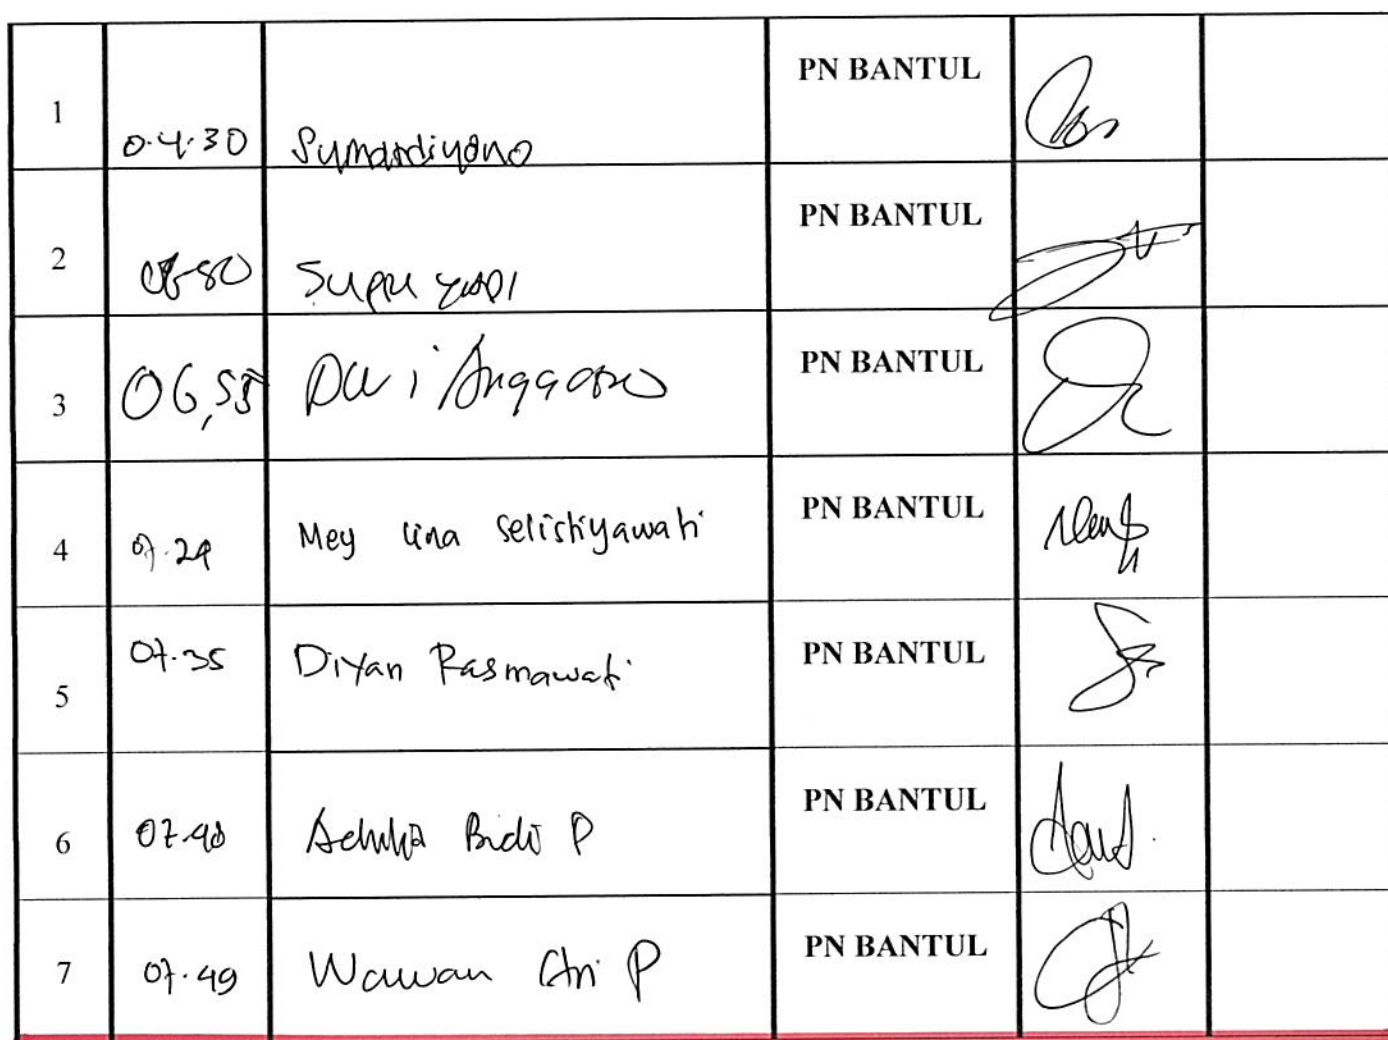 1 0.4.30 Sumardiyono PN BANTUL
2 PN BANTUL
3 06,55 Dwi Anggoro PN BANTUL
4 07.29 Mey Lina Selistiyawati PN BANTUL
5 07.35 Diyan Rasmawati PN BANTUL
6 07.48 P PN BANTUL
7 07.49 Wawan Ari P PN BANTUL